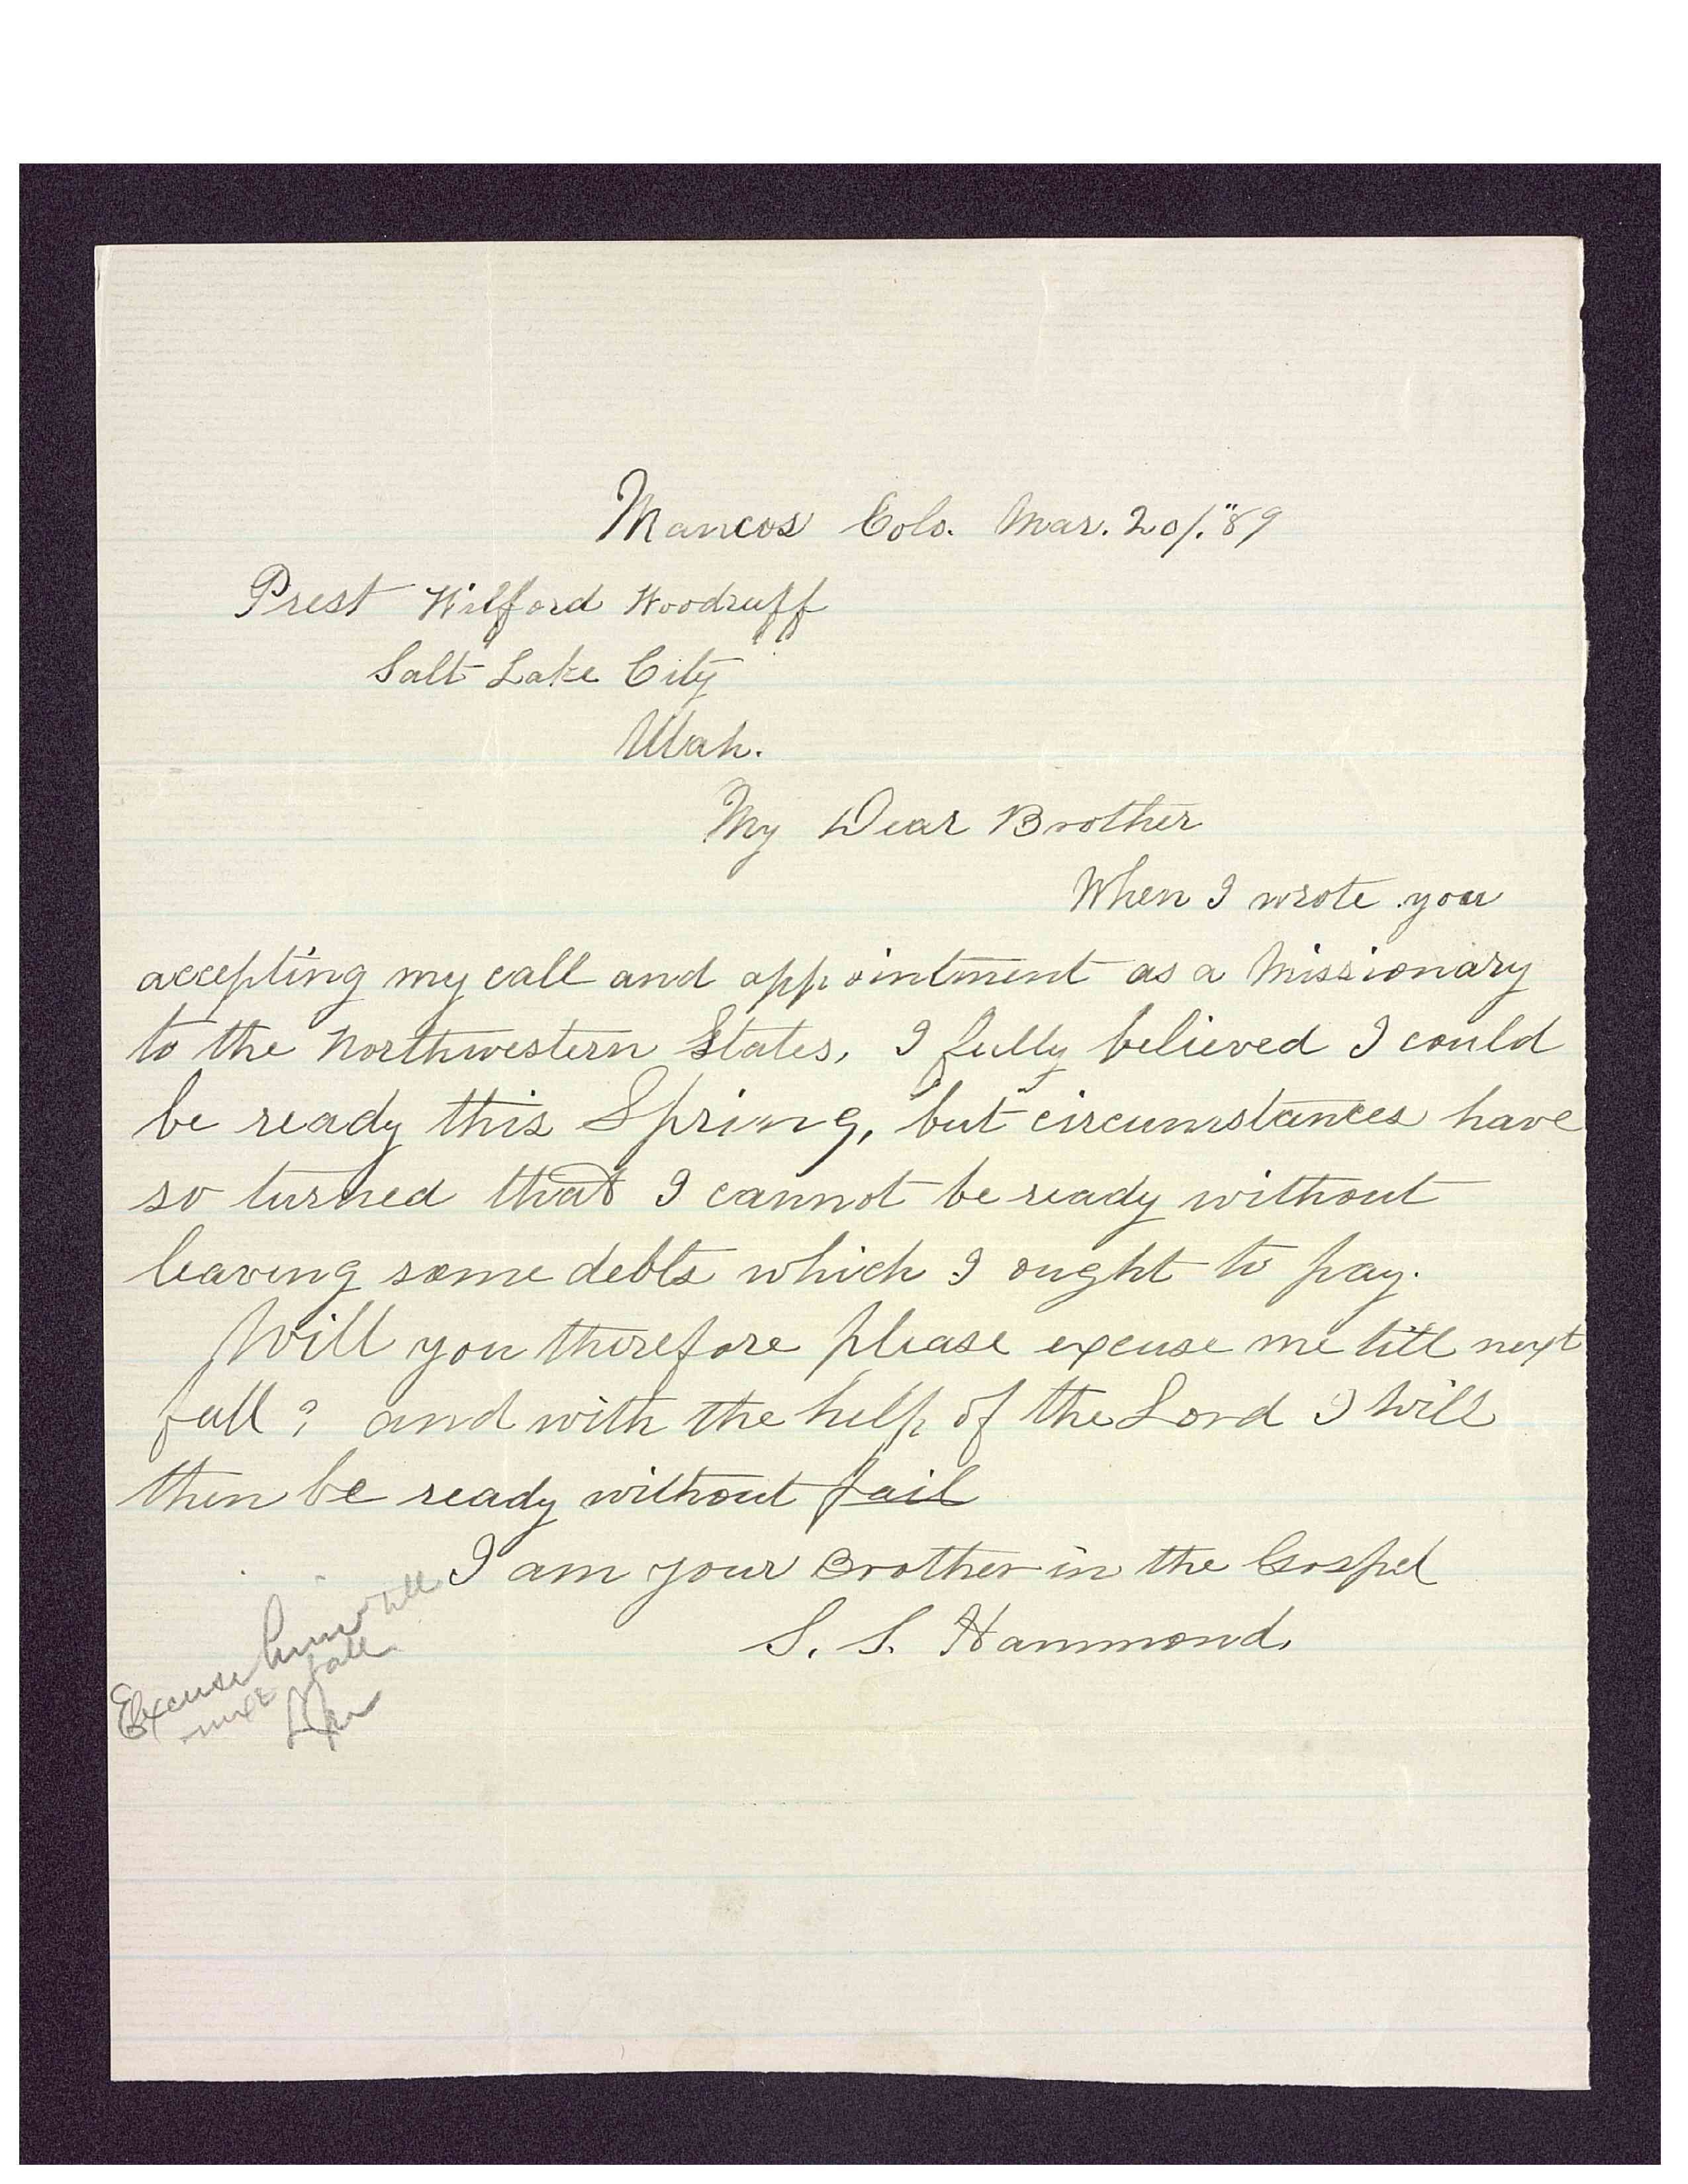 Mancos Colo. Mar. 20/. "89
Prest Wilford Woodruff
Salt Lake City
Utah.
My Dear Brother
When I wrote you
accepting my call and appointment as a Missionary
to the Northwestern States, I fully believed I could
be ready this Spring, but circumstances have
so turned that I cannot be ready without
leaving some debts which I ought to pay.
Will you therefore please excuse me till next
fall? and with the help of the Lord I will
then be ready without fail
I am your Brother in the Gospel
S. S. Hammond.
Excuse him till
next fall.